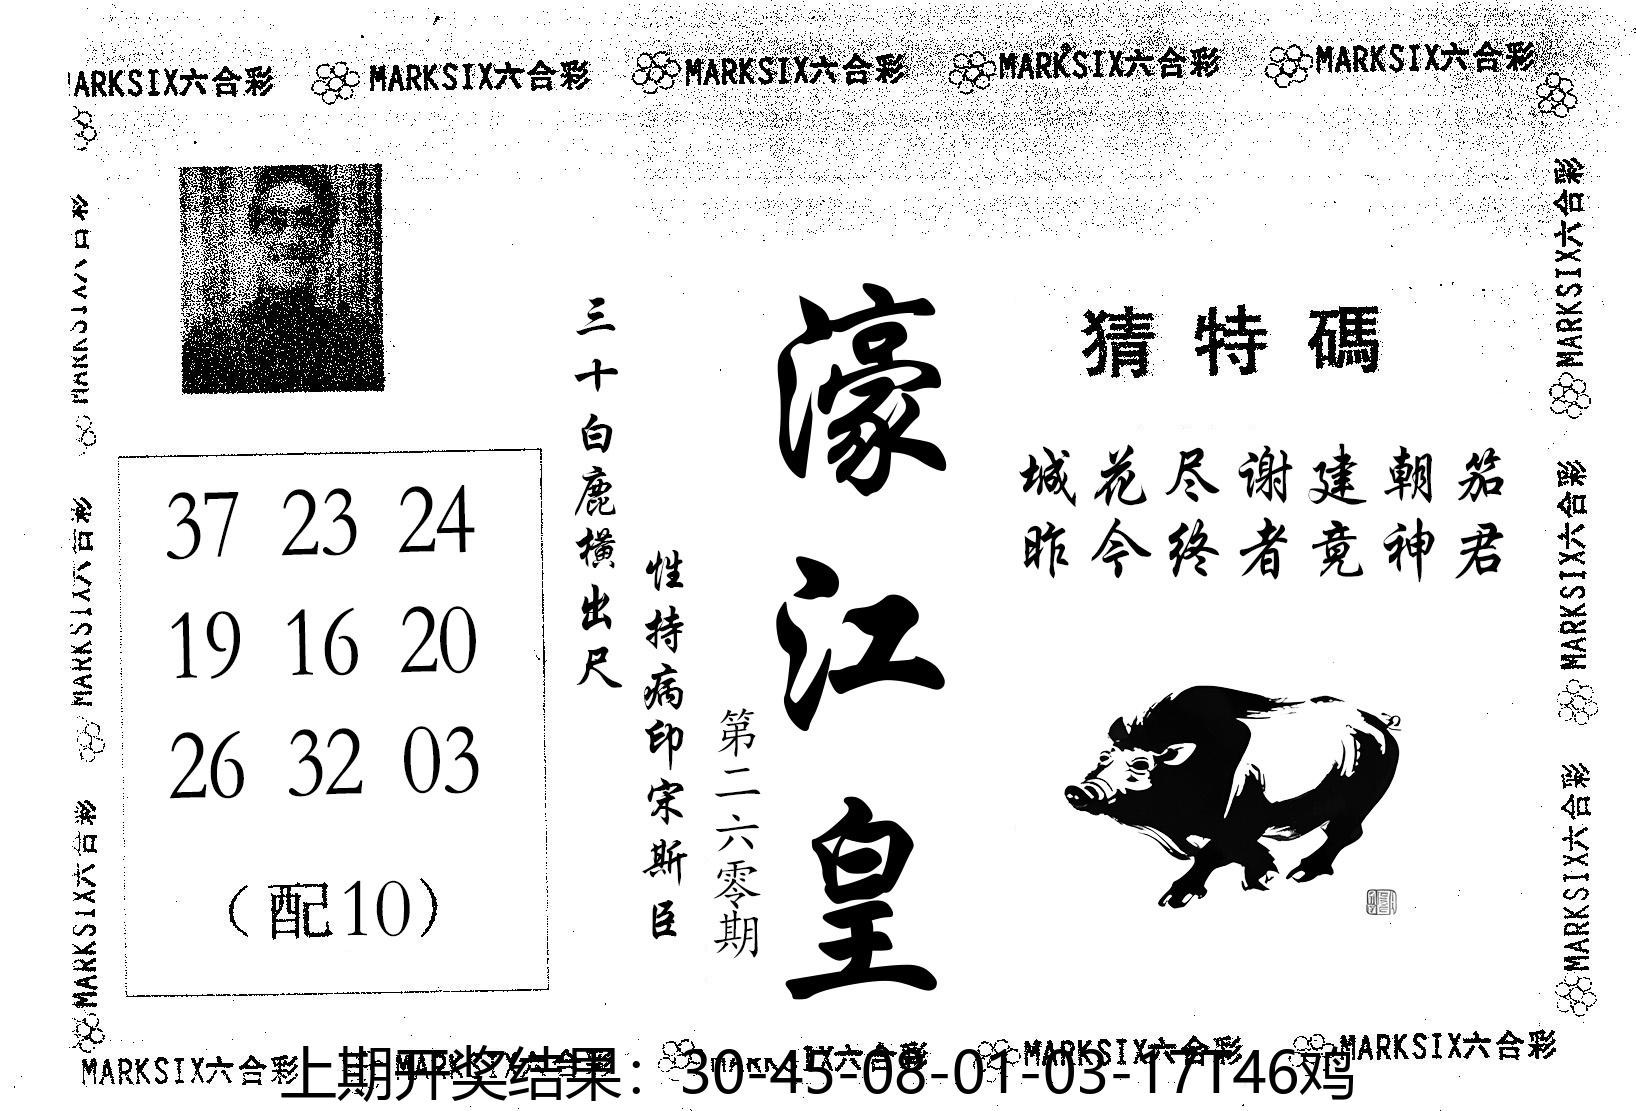 MARKSIX六合彩 MARKSIX六合彩 MARKSIX六合彩 MARKSIX六合彩 MARKSIX六合彩
猜特碼
城花尽谢建朝笳
昨今终者竟神君
濠江皇
第二六零期
性持病印宋斯臣
三十白鹿横出尺
37 23 24
19 16 20
26 32 03
（配10）
MARKSIX六合彩
MARKSIX六合彩
MARKSIX六合彩
MARKSIX六合彩
MARKSIX六合彩
MARKSIX六合彩
MARKSIX六合彩 MARKSIX六合彩 MARKSIX六合彩 MARKSIX六合彩 MARKSIX六合彩
上期开奖结果：30-45-08-01-03-17T46鸡